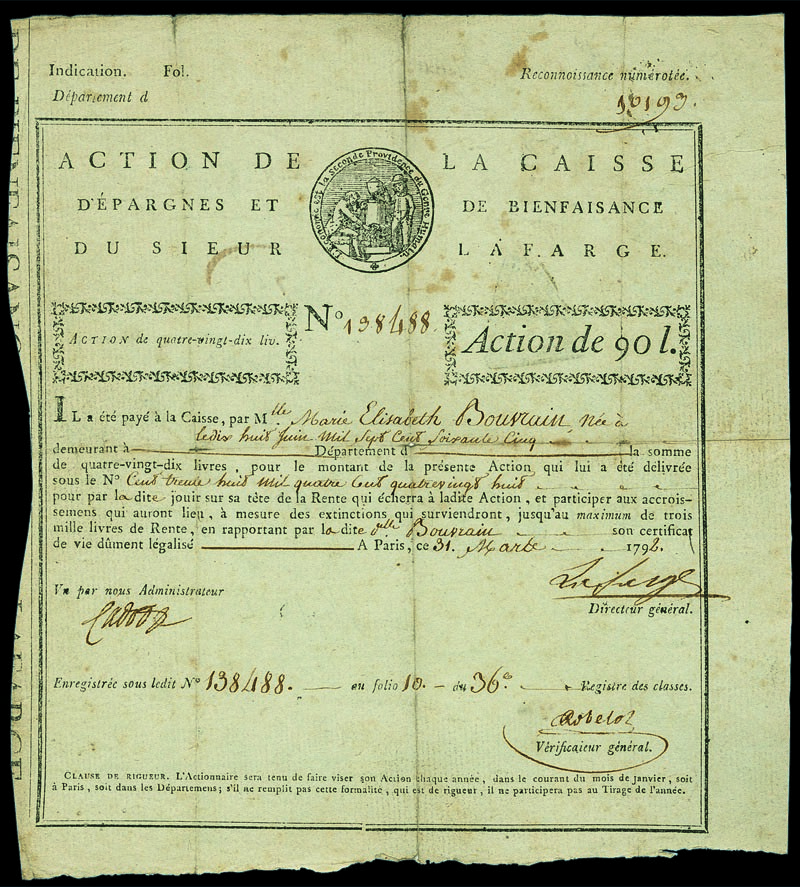 Indication. Fol.
Reconnoissance numérotée.
Département d
10193.
ACTION DE LA CAISSE
D'ÉPARGNES ET DE BIENFAISANCE
DU SIEUR LAFARGE.
L'Economie est la Seconde Providence du Genre Humain.
ACTION de quatre-vingt-dix liv.
No 138488
Action de 90 l.
IL a été payé à la Caisse, par Mlle Marie Elisabeth Bouvrain, née à
le dix huit Juin Mil Sept Cent Soixante Cinq
demeurant à Département d la somme
de quatre-vingt-dix livres, pour le montant de la présente Action, qui lui a été délivrée
sous le No Cent trente huit Mil quatre Cent quatrevingt huit
pour par la dite jouir sur sa tête de la Rente qui écherra à ladite Action, et participer aux accrois-
semens qui auront lieu, à mesure des extinctions qui surviendront, jusqu'au maximum de trois
mille livres de Rente, en rapportant par la dite dlle Bouvrain son certificat
de vie dûment légalisé A Paris, ce 31. Mars 1792.
Vu par nous Administrateur
Lafarge
Directeur général.
Enregistrée sous ledit No 138488. au folio 10. du 36e Registre des classes.
Vérificateur général.
CLAUSE DE RIGUEUR. L'Actionnaire sera tenu de faire viser son Action chaque année, dans le courant du mois de janvier, soit
à Paris, soit dans les Départemens; s'il ne remplit pas cette formalité, qui est de rigueur, il ne participera pas au Tirage de l'année.